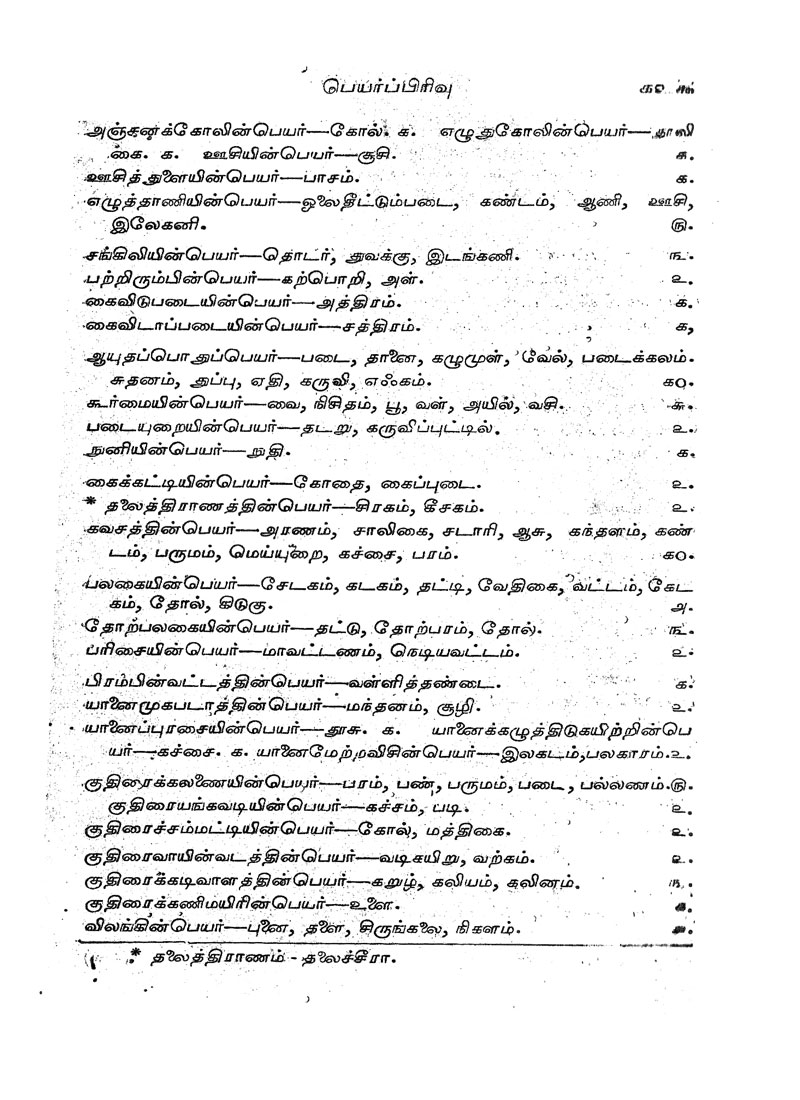 பெயர்ப்பிரிவு
அஞ்சனக்கோலின்பெயர்—கோல். க. எழுதுகோலின்பெயர்—தூலி
கை. க. ஊசியின்பெயர்—சூசி. க.
ஊசித்துளையின்பெயர்—பாசம். க.
எழுத்தாணியின்பெயர்—ஓலைதீட்டும்படை, கண்டம், ஆணி, ஊசி,
இலேகனி. ௫.
சங்கிலியின்பெயர்—தொடர், துவக்கு, இடங்கணி. ௩.
பற்றிரும்பின்பெயர்—கற்பொறி, அள். ௨.
கைவிடுபடையின்பெயர்—அத்திரம். க.
கைவிடாப்படையின்பெயர்—சத்திரம். க,
ஆயுதப்பொதுப்பெயர்—படை, தானை, கழுமுள், வேல், படைக்கலம்.
சுதனம், துப்பு, ஏதி, கருவி, எஃகம். க௦.
கூர்மையின்பெயர்—வை, நிசிதம், பூ, வள், அயில், வசி. ௬.
படையுறையின்பெயர்—தடறு, கருவிப்புட்டில். ௨.
நுனியின்பெயர்—நுதி. க.
கைக்கட்டியின்பெயர்—கோதை, கைப்புடை. ௨.
* தலைத்திராணத்தின்பெயர்—சிரகம், கீசகம். ௨.
கவசத்தின்பெயர்—அரணம், சாலிகை, சடாரி, ஆசு, கந்தளம், கண்
டம், பருமம், மெய்யுறை, கச்சை, பரம். க௦.
பலகையின்பெயர்—சேடகம், கடகம், தட்டி, வேதிகை, வட்டம், கேட
கம், தோல், கிடுகு. அ.
தோற்பலகையின்பெயர்—தட்டு, தோற்பரம், தோல். ௩.
பரிசையின்பெயர்—மாவட்டணம், நெடியவட்டம். ௨.
பிரம்பின்வட்டத்தின்பெயர்—வள்ளித்தண்டை. க.
யானைமுகபடாத்தின்பெயர்—மந்தனம், சூழி. ௨.
யானைப்புரசையின்பெயர்—தூசு. க. யானைக்கழுத்திடுகயிற்றின்பெ
யர்—கச்சை. க. யானைமேற்றவிசின்பெயர்—இலகடம்,பலகாரம்.௨.
குதிரைக்கலணையின்பெயர்—பரம், பண், பருமம், படை, பல்லணம்.௫.
குதிரையங்கவடியின்பெயர்—கச்சம், படி. ௨.
குதிரைச்சம்மட்டியின்பெயர்—கோல், மத்திகை. ௨.
குதிரைவாயின்வடத்தின்பெயர்—வடிகயிறு, வற்கம். ௨.
குதிரைக்கடிவாளத்தின்பெயர்—கறுழ், கலியம், கலினம். ௩.
குதிரைக்கணிமயிரின்பெயர்—உளை.
விலங்கின்பெயர்—புனை, தளை, சிருங்கலை, நிகளம்.
* தலைத்திராணம் - தலைச்சீரா.